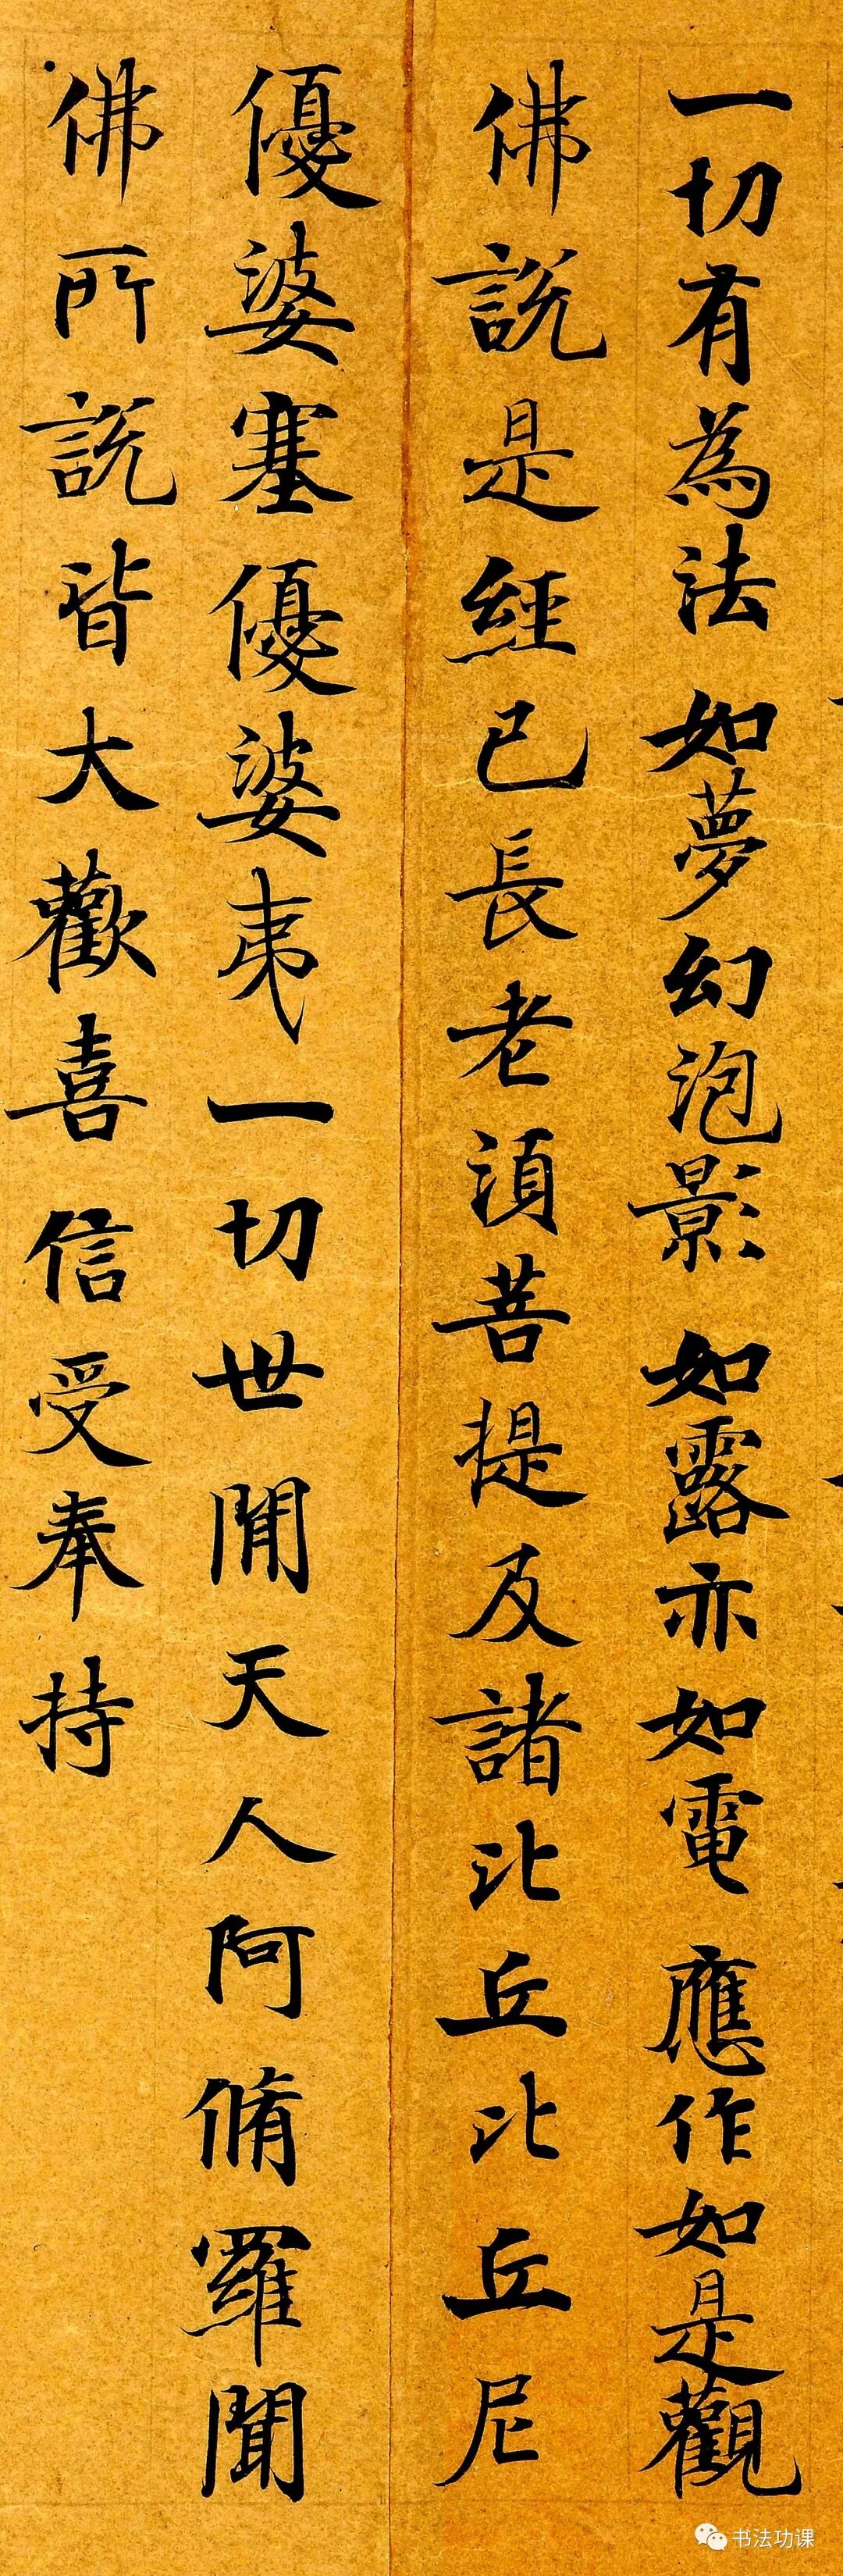 一切有為法 如夢幻泡影 如露亦如電 應作如是觀
佛說是經已長老須菩提及諸比丘比丘尼
優婆塞優婆夷一切世間天人阿脩羅聞
佛所說皆大歡喜信受奉持
书法功课